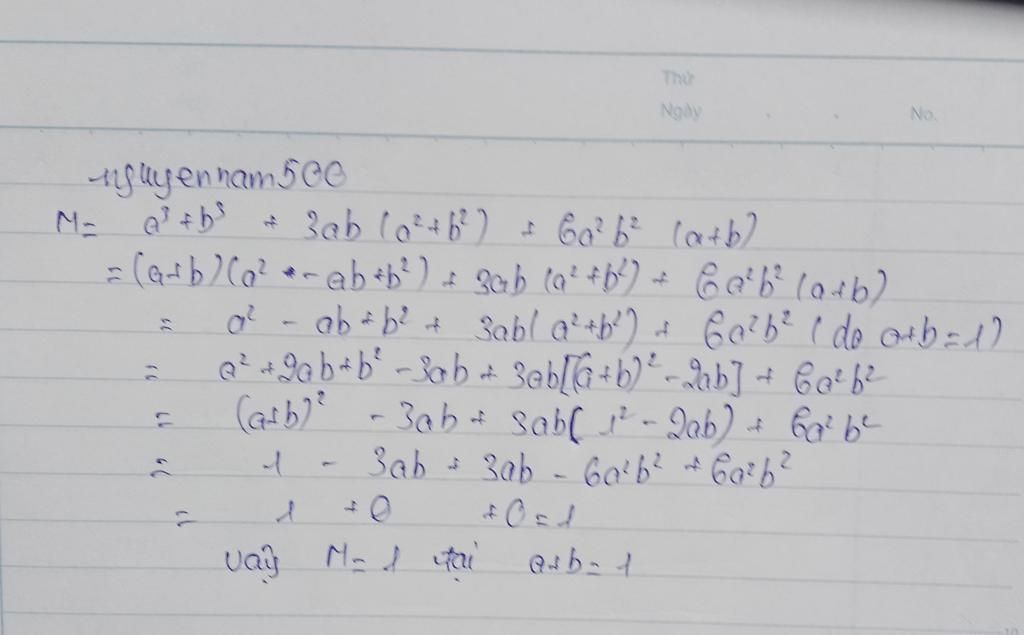 Thứ
Ngày . . No.
nguyennam500
M = a³ + b³ + 3ab (a² + b²) + 6a²b² (a+b)
= (a+b)(a² - ab + b²) + 3ab (a² + b²) + 6a²b² (a+b)
= a² - ab + b² + 3ab (a² + b²) + 6a²b² (do a+b = 1)
= a² + 2ab + b² - 3ab + 3ab[(a+b)² - 2ab] + 6a²b²
= (a+b)² - 3ab + 3ab( 1² - 2ab) + 6a²b²
= 1 - 3ab + 3ab - 6a²b² + 6a²b²
= 1 + 0 + 0 = 1
vậy M = 1 tại a+b = 1